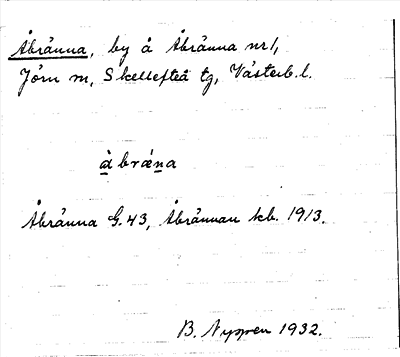 Åbränna, by å Åbränna nr 1,
Jörn sn, Skellefteå tg, Västerb. l.
å̀ bræ´na
Åbränna G. 43, Åbrännan kb. 1913.
B. Nygren 1932.